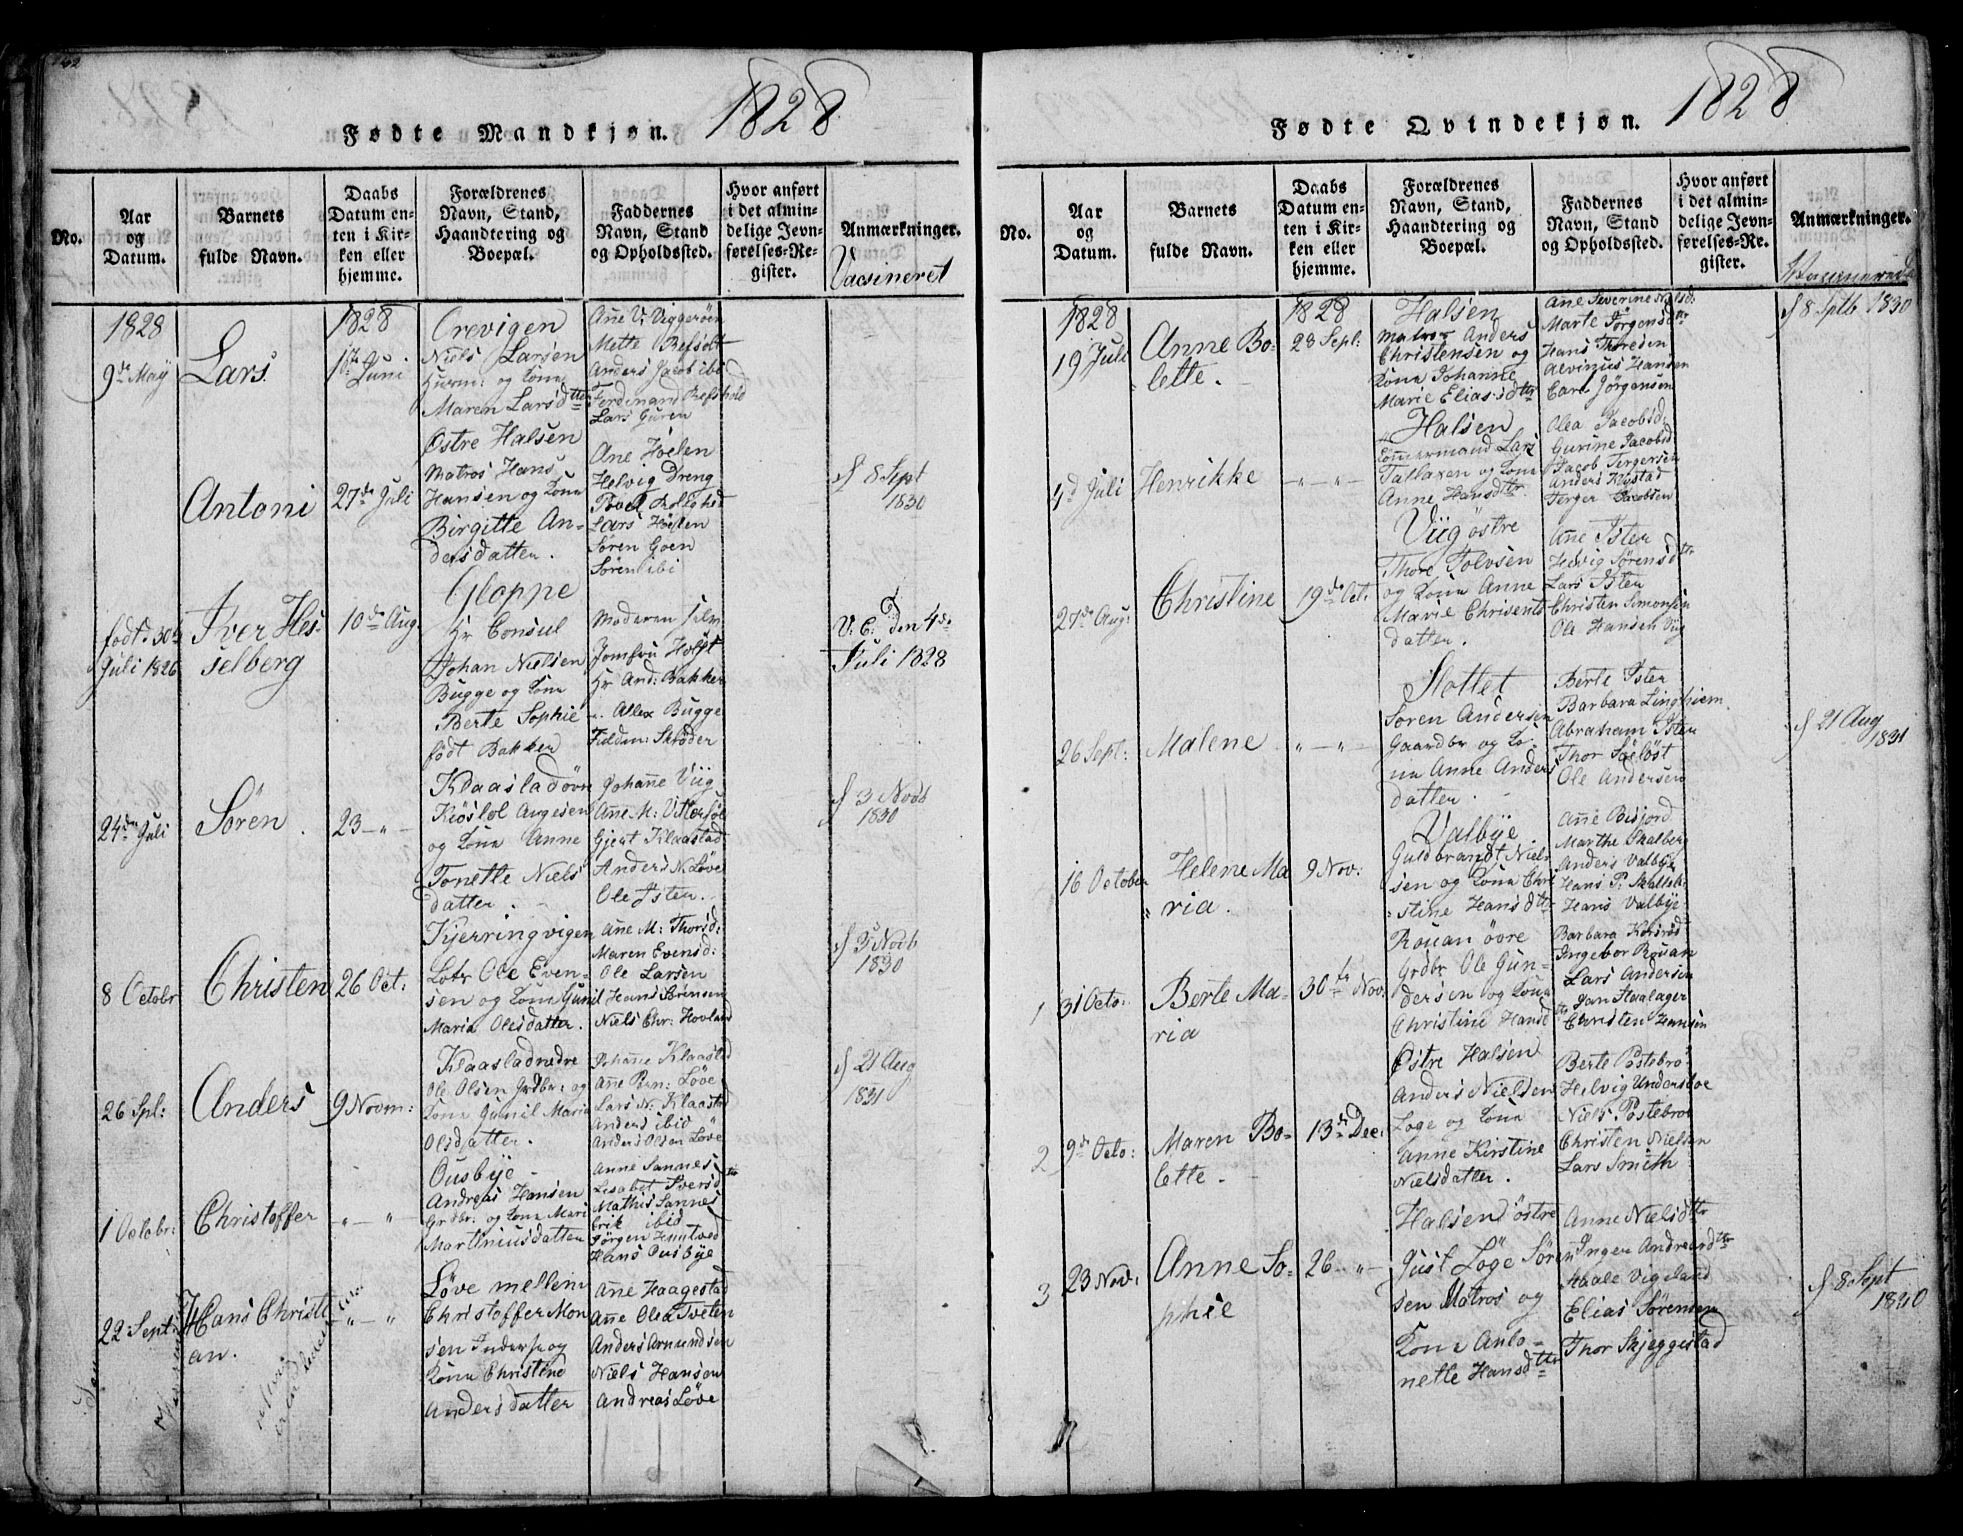 Fødte Mandkjøn. 1828
No.
Aar
og
Datum.
Barnets
fulde Navn.
Daabs
Datum en-
ten i Kir-
ken eller
hjemme.
Forældrenes
Navn, Stand,
Haandtering og
Boepæl.
Faddernes
Navn, Stand
og Opholdssted.
Hvor anført
i det almin-
delige Jevn-
førelses-Re-
gister.
Anmærkninger.
Vacsineret
1828
9de May
Lars
1828
1ste Juni
Orevigen
Niels Larsen
Huusm: og Kona
Maren Larsdtter
Ane V: Viggerøen
Mette Refsholt
Anders Jacob ibi
Ferdinand Refsholt
Lars Guren
Antoni
27de Juli
Østre Halsen
Matros Hans
Hansen og Kona
Birgitte An-
dersdatter.
Ane Hoelen
Helvig Dreng
Lars Hoelen
Søren Goen
Søren ibi
8 Sept
1830
født 30te
Juli 1826
Iver Hes-
selberg
10de Aug
Gloppe
Hr Consul
Johan Nielsen
Bugge og Kona
Berte Sophie
født Bakker
Moderen selv
Jomfru Holst
Hr And: Bakker
" Allex Bugge
Fuldm: Skrøder
V: C: Den 4de
Juli 1828
24de Juli
Søren
23 — " —
Klaasladøvre
og Kona Anne
Tonette Niels
datter.
Johañe Viig
Gjert Klaastad
Anders N: Løve
Ole Isten.
3 Novb
1830
8 Octobr
Christen
26 Oct:
Kjerringvigen
Lots Ole Even-
sen og Kona Gunil
Maria Olesdatter.
Añe M: Thorsd:
Maren Evensd:
Ole Larsen
Hans Sørensen
Niels Chr: Hovland
3 Novb
1830
26 Spl:
Anders
9 Novm:
Klaasladnedre
Ole Olsen Grdbr: og
Kona Gunil Maria
Olsdatter.
Johañe Klaastad
Añe Pern: Løve
Lars N: Klaastad
Anders ibid
Anders Olsen Løve
21 Aug
1831
1 Octobr:
Christoffer
" — "
Ousbye
Andreas Hansen
Grdbr: og Kona Mari
Martiniusdatter
Anne Sannes
Lisabet Sversdtr
Mathis Sannes
Erik ibid
Jørgen
Hans Ousbye
22 Sept:
Hans Christi
an.
" — "
Løve mellem
Christoffer Mon
sen Inderse og
Kona Christine
Andersdatter
Añe Haagestad
Añe Olea Sveten
Anders Amundsen
Niels Hansen
Andreas Løve
Fødte Qvindekjøn. 1828
No.
Aar
og
Datum.
Barnets
fulde Navn.
Daabs
Datum en-
ten i Kir-
ken eller
hjemme.
Forældrenes
Navn, Stand,
Haandtering og
Boepæl.
Faddernes
Navn, Stand
og Opholdssted.
Hvor anført
i det almin-
delige Jevn-
førelses-Re-
gister.
Anmærkninger.
1828
19 Juli
Anne Bo-
lette.
1828
28 Sepl:
Halsen
Matros Anders
Christensen og
Kona Johanne
Marie Eliasdtr
Ane Severine Nilsd:
Marte Jørgensdtr
Hans Thoresen
Alvinus Hansen
Carl Jørgensen
8 Sptb 1830
4d Juli
Henrikke
" — " —
Halsen
Tømmermand Lars
Tallaxen og Kona
Anne Hansdtr.
Olea Jacobsd:
Gurine Jacobsd
Jacob Tergersen
Anders Klastad
Terger Jacobsen
27de Aug:
Christine
19de Oct.
Viig østre
Thore Tolvsen
og Kona Anne
Marie Chrisents
datter.
Añe Isten
Helvig Sørensdtr
Lars Isten
Christen Simonsen
Ole Hansen Viig
26 Sept:
Malene
" — " —
Slottet
Søren Andersen
Gaardbr og Ko-
na Anne Anders
datter.
Berte Isten
Barbara Linghiem
Abraham Isten
Thor Søeløst
Ole Andersen
21 Aug
1831
16 October
Helene Ma
ria.
9 Nov:
Valbye
Guldbrandt Niels
sen og Kona Chri
stine Hansdtr
Añe Bisjord
Marthe Skalber
Anders Valbye
Hans P. Skalleb:
Hans Valbye
1
31 Octo:
Berte Ma-
ria
30te Nov:
Rouan övre
Grdbr Ole Gun-
dersen og Kona
Christine Hansdtr
Barbara Korsrød
Ingebor Rouan
Lars Andersen
Jan Haalager
Christen Hansen
2
9de Octo:
Maren Bo-
lette.
13de Dec:
Østre Halsen
Anders Nielsen
Loge og Kona
Anne Kirstine
Nielsdatter.
Berte Postebro
Helvig Undersboe
Niels Postebroe
Christen Nielsen
Lars Smith
3
23 Nov:
Anne So-
phie
26 — " —
Halsen østre
Just Løge Søren
sen Matros og
Kona Anto-
nette Hansdtr
Anne Nielsdtr
Inger Andreasdtr
Abale Vigeland
Elias Sørensen
Thor Skjeggestad
8 Sept
1830